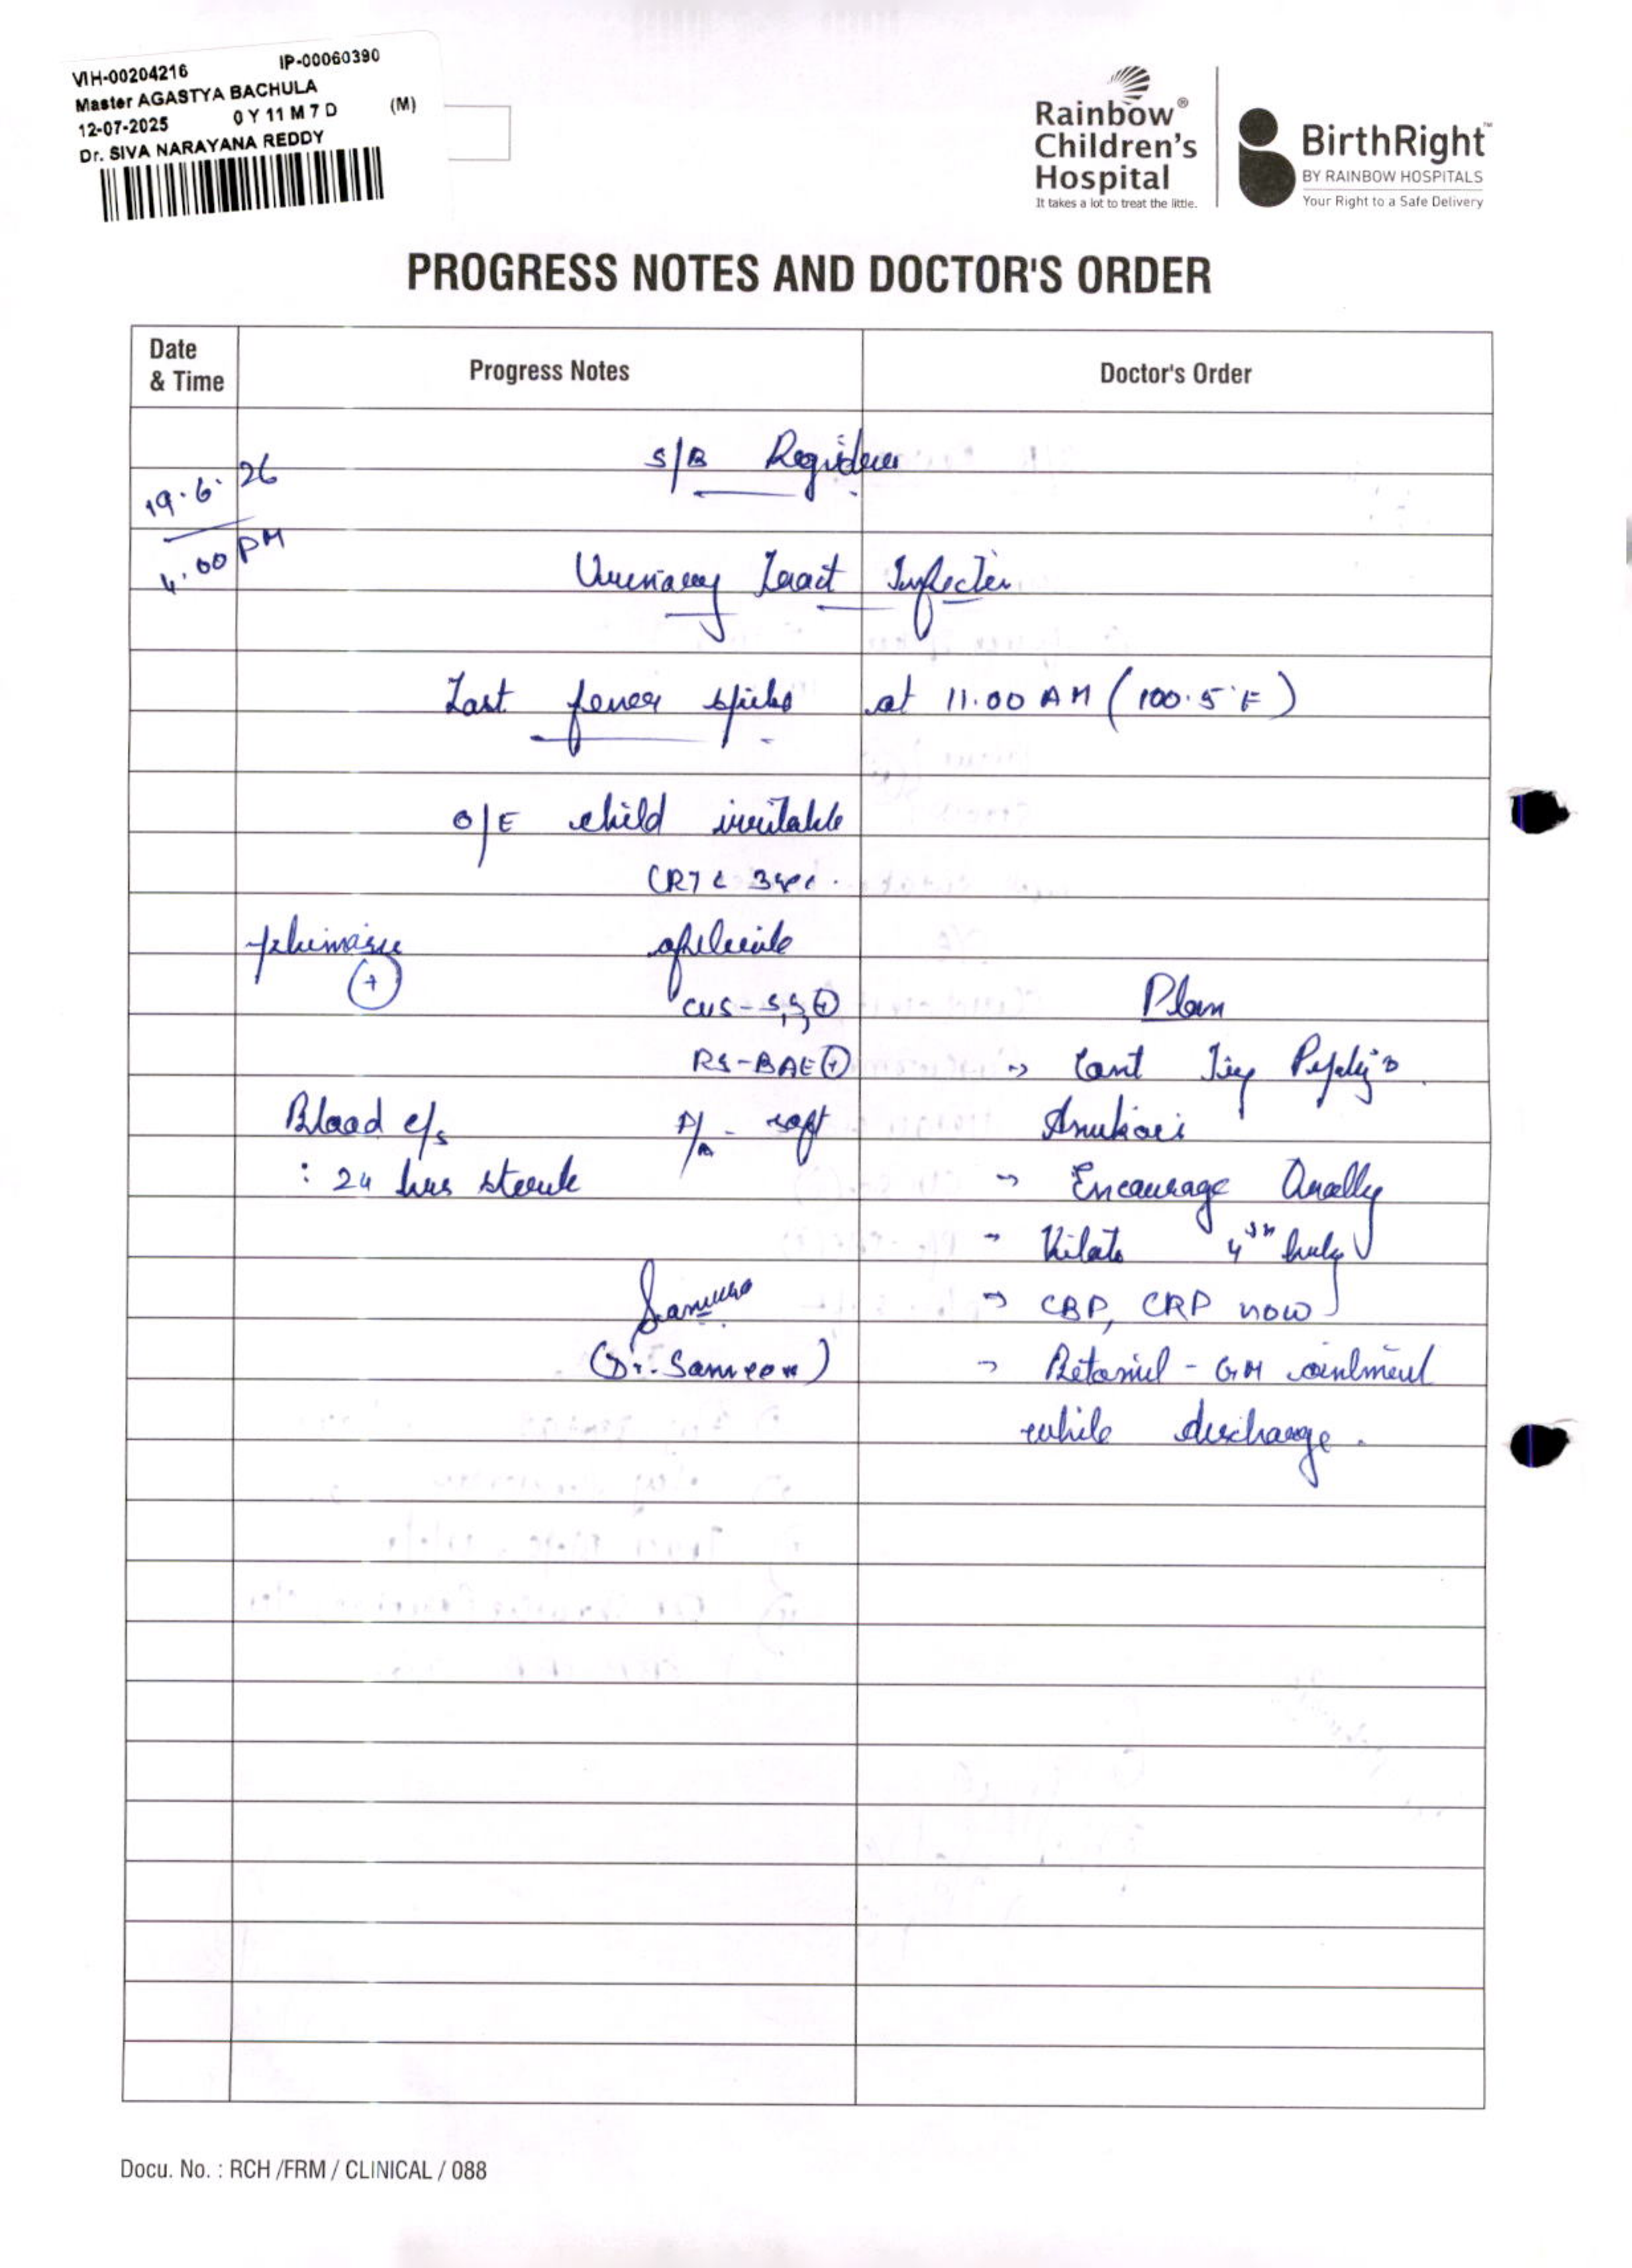 VIH-00204216 IP-00060390
Master AGASTYA BACHULA
12-07-2025 0 Y 11 M 7 D (M)
Dr. SIVA NARAYANA REDDY
Rainbow®
Children's
Hospital
It takes a lot to treat the little.
BirthRight™
BY RAINBOW HOSPITALS
Your Right to a Safe Delivery
PROGRESS NOTES AND DOCTOR'S ORDER
Date
& Time
Progress Notes
Doctor's Order
19.6.26
4.00 PM
S/B
Urinary Tract Infection
Last fever spike at 11.00 AM (100.5°F)
O/E child irritable
CRT < 3sec.
phimosis
+
afebrile
CVS-S,S,+
RS-BAE+
P/A - soft
Blood c/s
: 24 hrs sterile
Plan
→ Cont Inj
→ Encourage Orally
Vitals 4th hrly
→ CBP, CRP now
→ - GM ointment
while discharge.
(Dr. Sameer)
Docu. No. : RCH /FRM / CLINICAL / 088